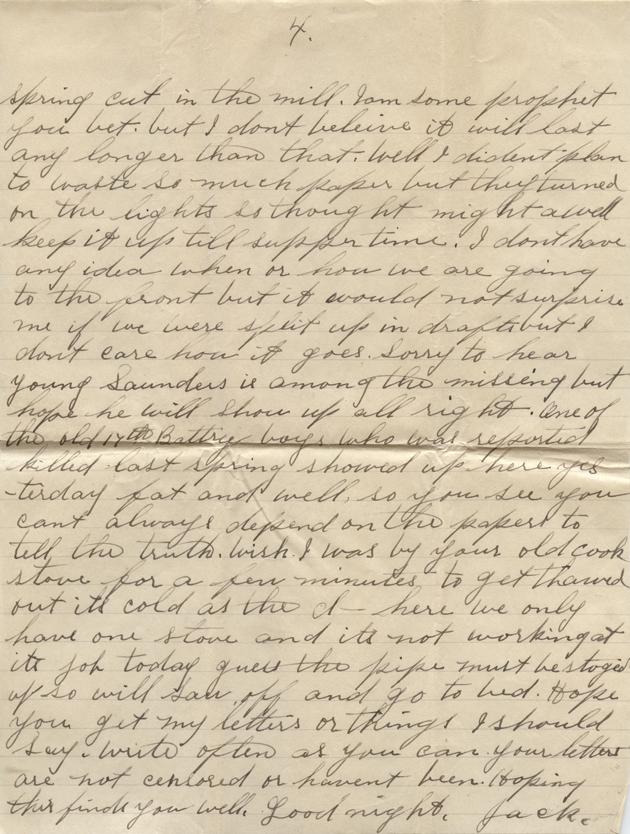 4.
spring cut in the mill. I am some prophet
you bet. but I dont beleive it will last
any longer than that. Well I dident plan
to waste so much paper but they turned
on the lights so thought might a well
keep it up till supper time. I dont have
any idea when or how we are going
to the front but it would not surprise
me if we were split up in drafts but I
dont care how it goes. Sorry to hear
young Saunders is among the missing but
hope he will show up all right. One of
the old 17th Battrey boys who was reported
killed last spring showed up here yes
-terday fat and well, so you see you
cant always depend on the papers to
tell the truth. Wish I was by your old cook
stove for a few minutes to get thawed
out its cold as the d— here we only
have one stove and its not working at
its job today guess the pipe must be stoged
up so will saw off and go to bed. Hope
you get my letters or things I should
say. Write often as you can. your letters
are not censored or havent been. Hoping
this finds you well. Good night. Jack.